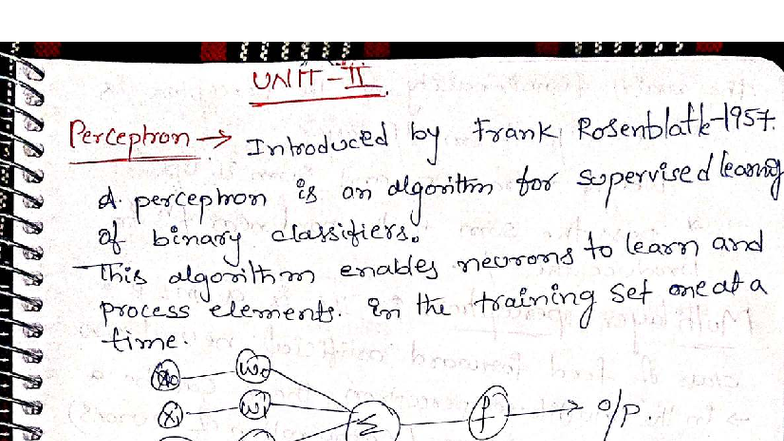 UNIT-II
Perceptron → Introduced by Frank Rosenblatt-1957.
A perceptron is an algorithm for supervised learning
of binary classifiers.
This algorithm enables neurons to learn and
process elements. In the training set one at a
time.
x0 w0
x1 w1 Σ f → o/p.